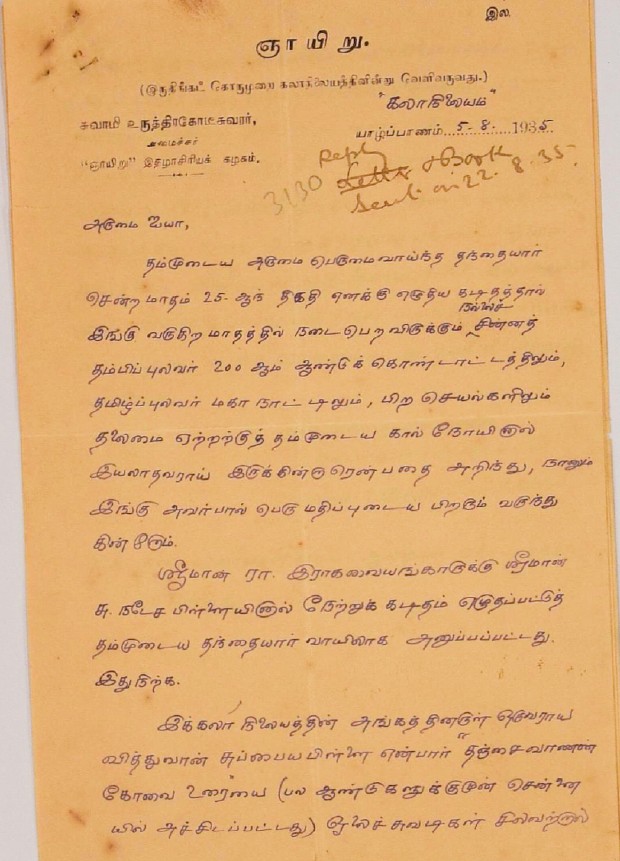 இல
ஞாயிறு.
(இருதிங்கட் கொருமுறை கலாநிலையத்தினின்று வெளிவருவது.)
"கலாநிலையம்"
சுவாமி உருத்திரகோடீசுவரர்,
அமைச்சர்
யாழ்ப்பாணம் 5-8- 1935
"ஞாயிறு" இதழாசிரியக் கழகம்.
3130 Reply
Letter & Book
Sent on 22.8.35.
அருமை ஐயா,
தம்முடைய அருமை பெருமைவாய்ந்த தந்தையார்
சென்ற மாதம் 25-ஆந் திகதி எனக்கு எழுதிய கடிதத்தால்
நல்லைச்
இங்கு வருகிற மாதத்தில் நடைபெற விருக்கும் சின்னத்
தம்பிப்புலவர் 200 ஆம் ஆண்டுக் கொண்டாட்டத்திலும்,
தமிழ்ப்புலவர் மகாநாட்டிலும், பிற செயல்களிலும்
தலைமை ஏற்றற்குத் தம்முடைய கால் நோயினால்
இயலாதவராய் இருக்கின்றாரென்பதை அறிந்து, நானும்
இங்கு அவர்பால் பெருமதிப்புடைய பிறரும் வருந்து
கின்றோம்.
ஸ்ரீமான் ரா. இராகவையங்காருக்கு ஸ்ரீமான்
சு. நடேச பிள்ளையினால் நேற்றுக் கடிதம் எழுதப்பட்டுத்
தம்முடைய தந்தையார் வாயிலாக அனுப்பப்பட்டது.
இதுநிற்க.
இக்கலா நிலையத்தின் அங்கத்தினருள் ஒருவராய
வித்துவான் சுப்பைய பிள்ளை என்பார் "தஞ்சைவாணன்
கோவை உரையை (பல ஆண்டுகளுக்குமுன் சென்னை
யில் அச்சிடப்பட்டது) ஓலைச்சுவடிகள் சிலவற்றால்